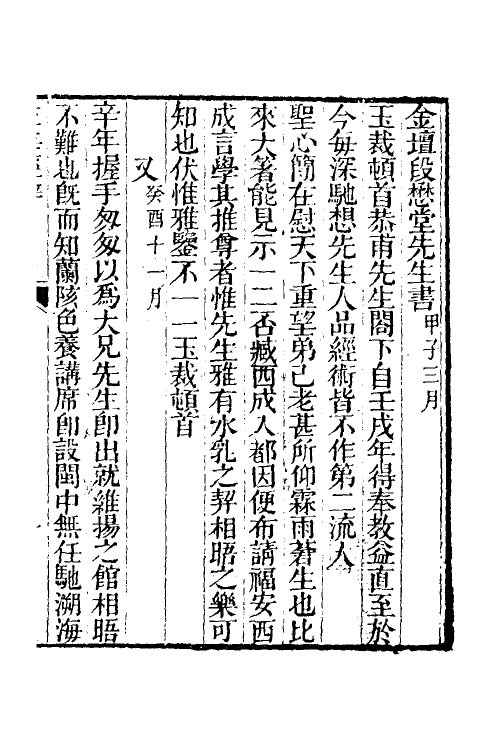 金壇段懋堂先生書甲子三月
玉裁頓首恭甫先生閣下自壬戌年得奉教益直至於
今每深馳想先生人品經術皆不作第二流人
聖心簡在慰天下重望弟已老甚所仰霖雨蒼生也比
來大箸能見示一二否臧西成人都因便布請福安西
成言學其推尊者惟先生雅有水乳之契相晤之樂可
知也伏惟雅鑒不一一玉裁頓首
又癸酉十一月
辛年握手匆匆以爲大兄先生卽出就維揚之館相晤
不難也旣而知蘭陔色養講席卽設閩中無任馳溯海